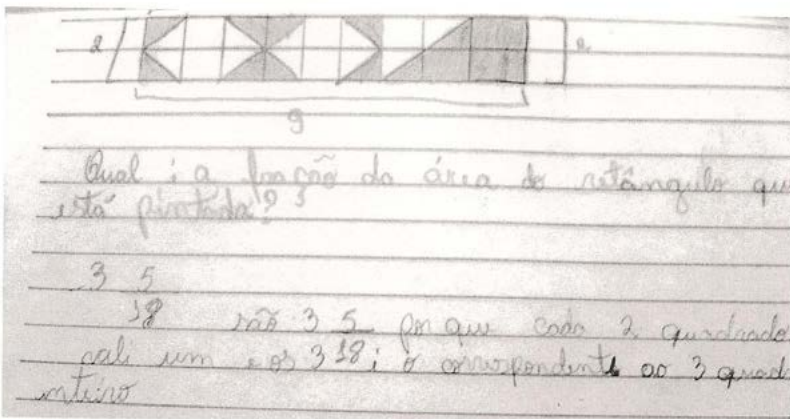 2 2
9
Qual é a fração da área do retângulo que
está pintada?
3 5
18 são 3 5 por que cada 2 quadrado
vali um e os 3 18; é o correspondente ao 3 quad
inteiro